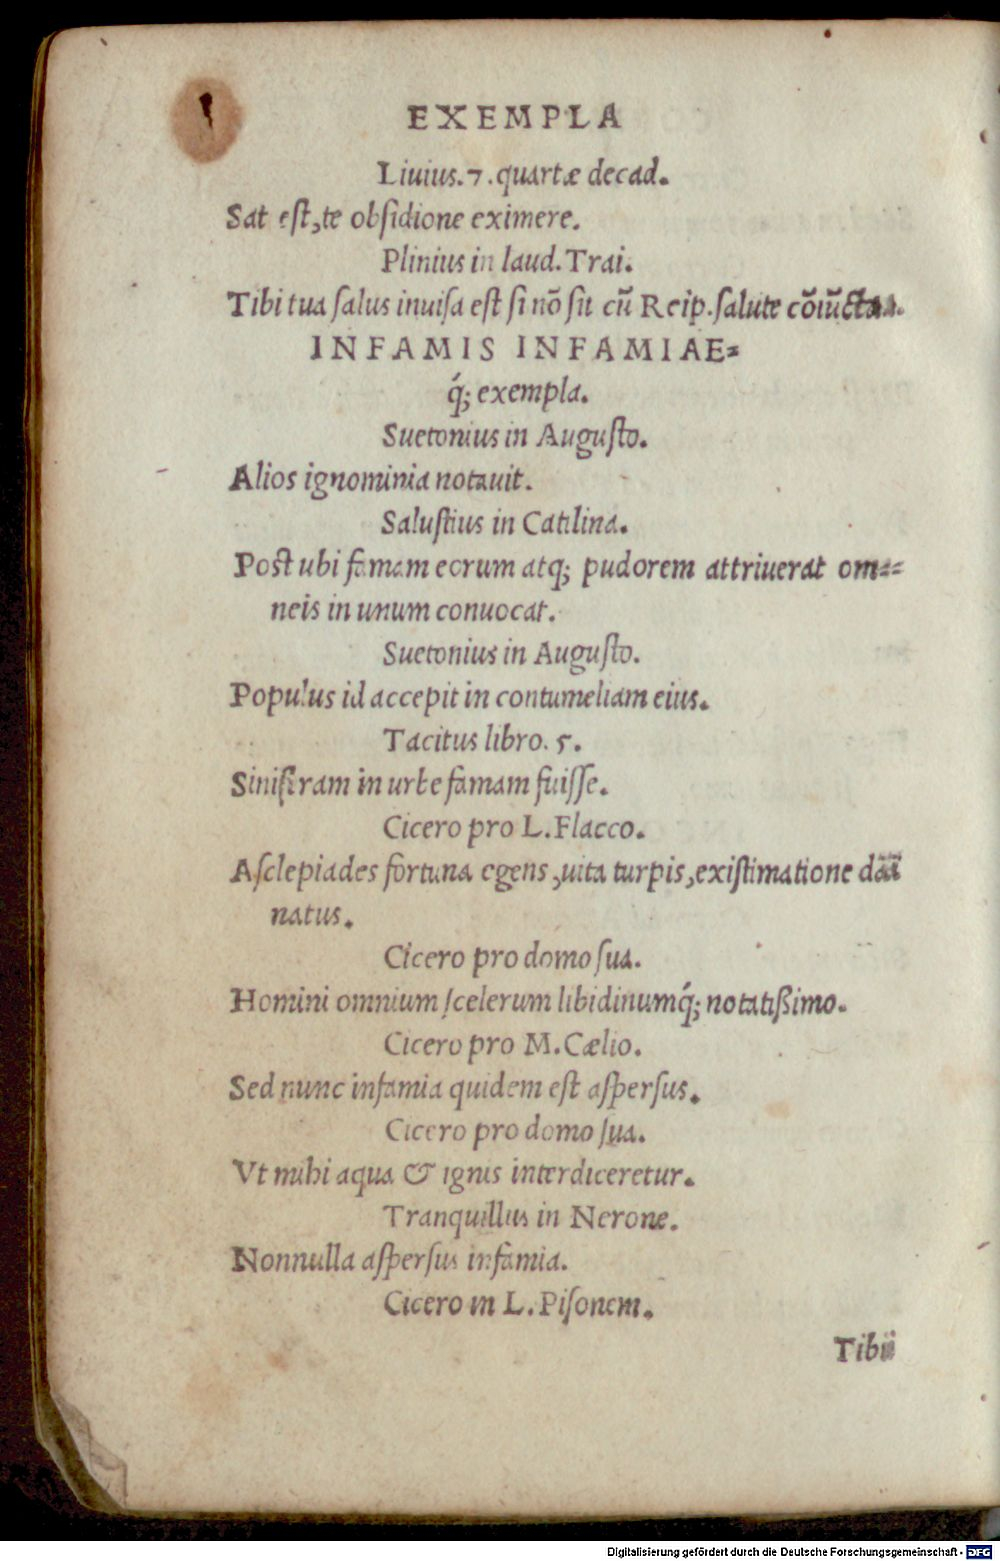 EXEMPLA
Liuius.7.quartæ decad.
Sat eſt,te obſidione eximere.
Plinius in laud.Trai.
Tibi tua ſalus inuiſa eſt ſi nō ſit cū Reip.ſalute cōiūcta.
INFAMIS INFAMIAE=
q́; exempla.
Suetonius in Auguſto.
Alios ignominia notauit.
Saluſtius in Catilina.
Poſt ubi famam eorum atq; pudorem attriuerat om=
neis in unum conuocat.
Suetonius in Auguſto.
Populus id accepit in contumeliam eius.
Tacitus libro.5.
Siniſtram in urbe famam fuiſſe.
Cicero pro L.Flacco.
Aſclepiades fortuna egens,uita turpis,exiſtimatione dā
natus.
Cicero pro domo ſua.
Homini omnium ſcelerum libidinumq́; notatißimo.
Cicero pro M.Cælio.
Sed nunc infamia quidem eſt aſperſus.
Cicero pro domo ſua.
Vt mihi aqua & ignis interdiceretur.
Tranquillus in Nerone.
Nonnulla aſperſus infamia.
Cicero in L.Piſonem.
Tibi
Digitalisierung gefördert durch die Deutsche Forschungsgemeinschaft - DFG